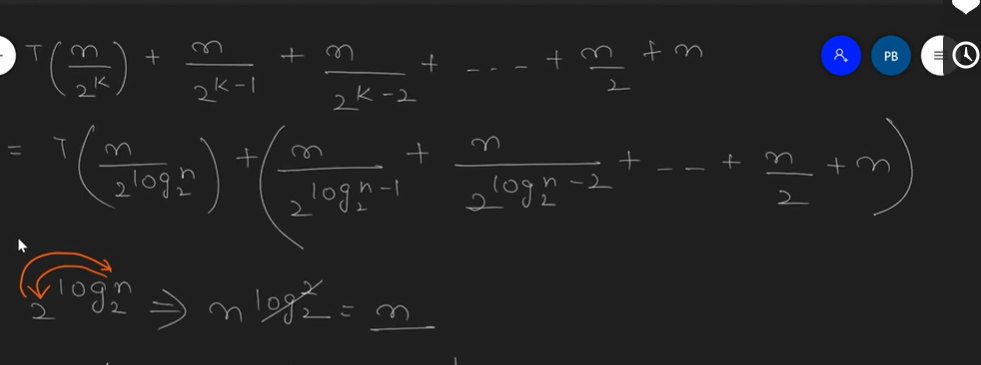 T(n/2^K) + n/2^(K-1) + n/2^(K-2) + ---- + n/2 + n
PB
= T(n/2^(log₂n)) + (n/2^(log₂n-1) + n/2^(log₂n-2) + -- -- + n/2 + n)
2^(log₂n) ⇒ n^(log₂2) = n